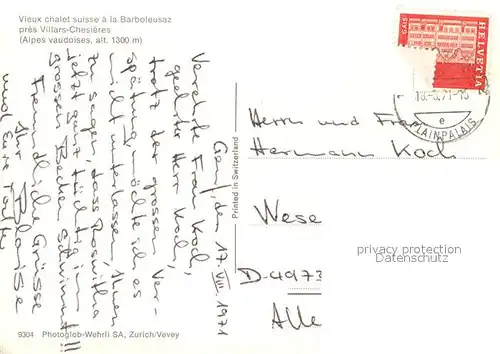 Vieux chalet suisse à la Barboleusaz
près Villars-Chesières
(Alpes vaudoises, alt. 1300 m)
Genf, den 17. VIII. 1971
Verehrte Frau Koch,
geehrter Herr Koch,
trotz der grossen Ver-
spätung möchte ich es
nicht unterlassen, Ihnen
zu sagen, dass Roswitha
jetzt ganz tüchtig im
grossen Becken schwimmt!!
Freundliche Grüsse
Ihr
und Eure
HELVETIA
GAIS
18.-8.71-13
e
PLAINPALAIS
Herrn und Frau
Hermann Koch
Wese
D-4973
Alle
privacy protection
Demonstration
Printed in Switzerland
9304 Photoglob-Wehrli SA, Zurich/Vevey